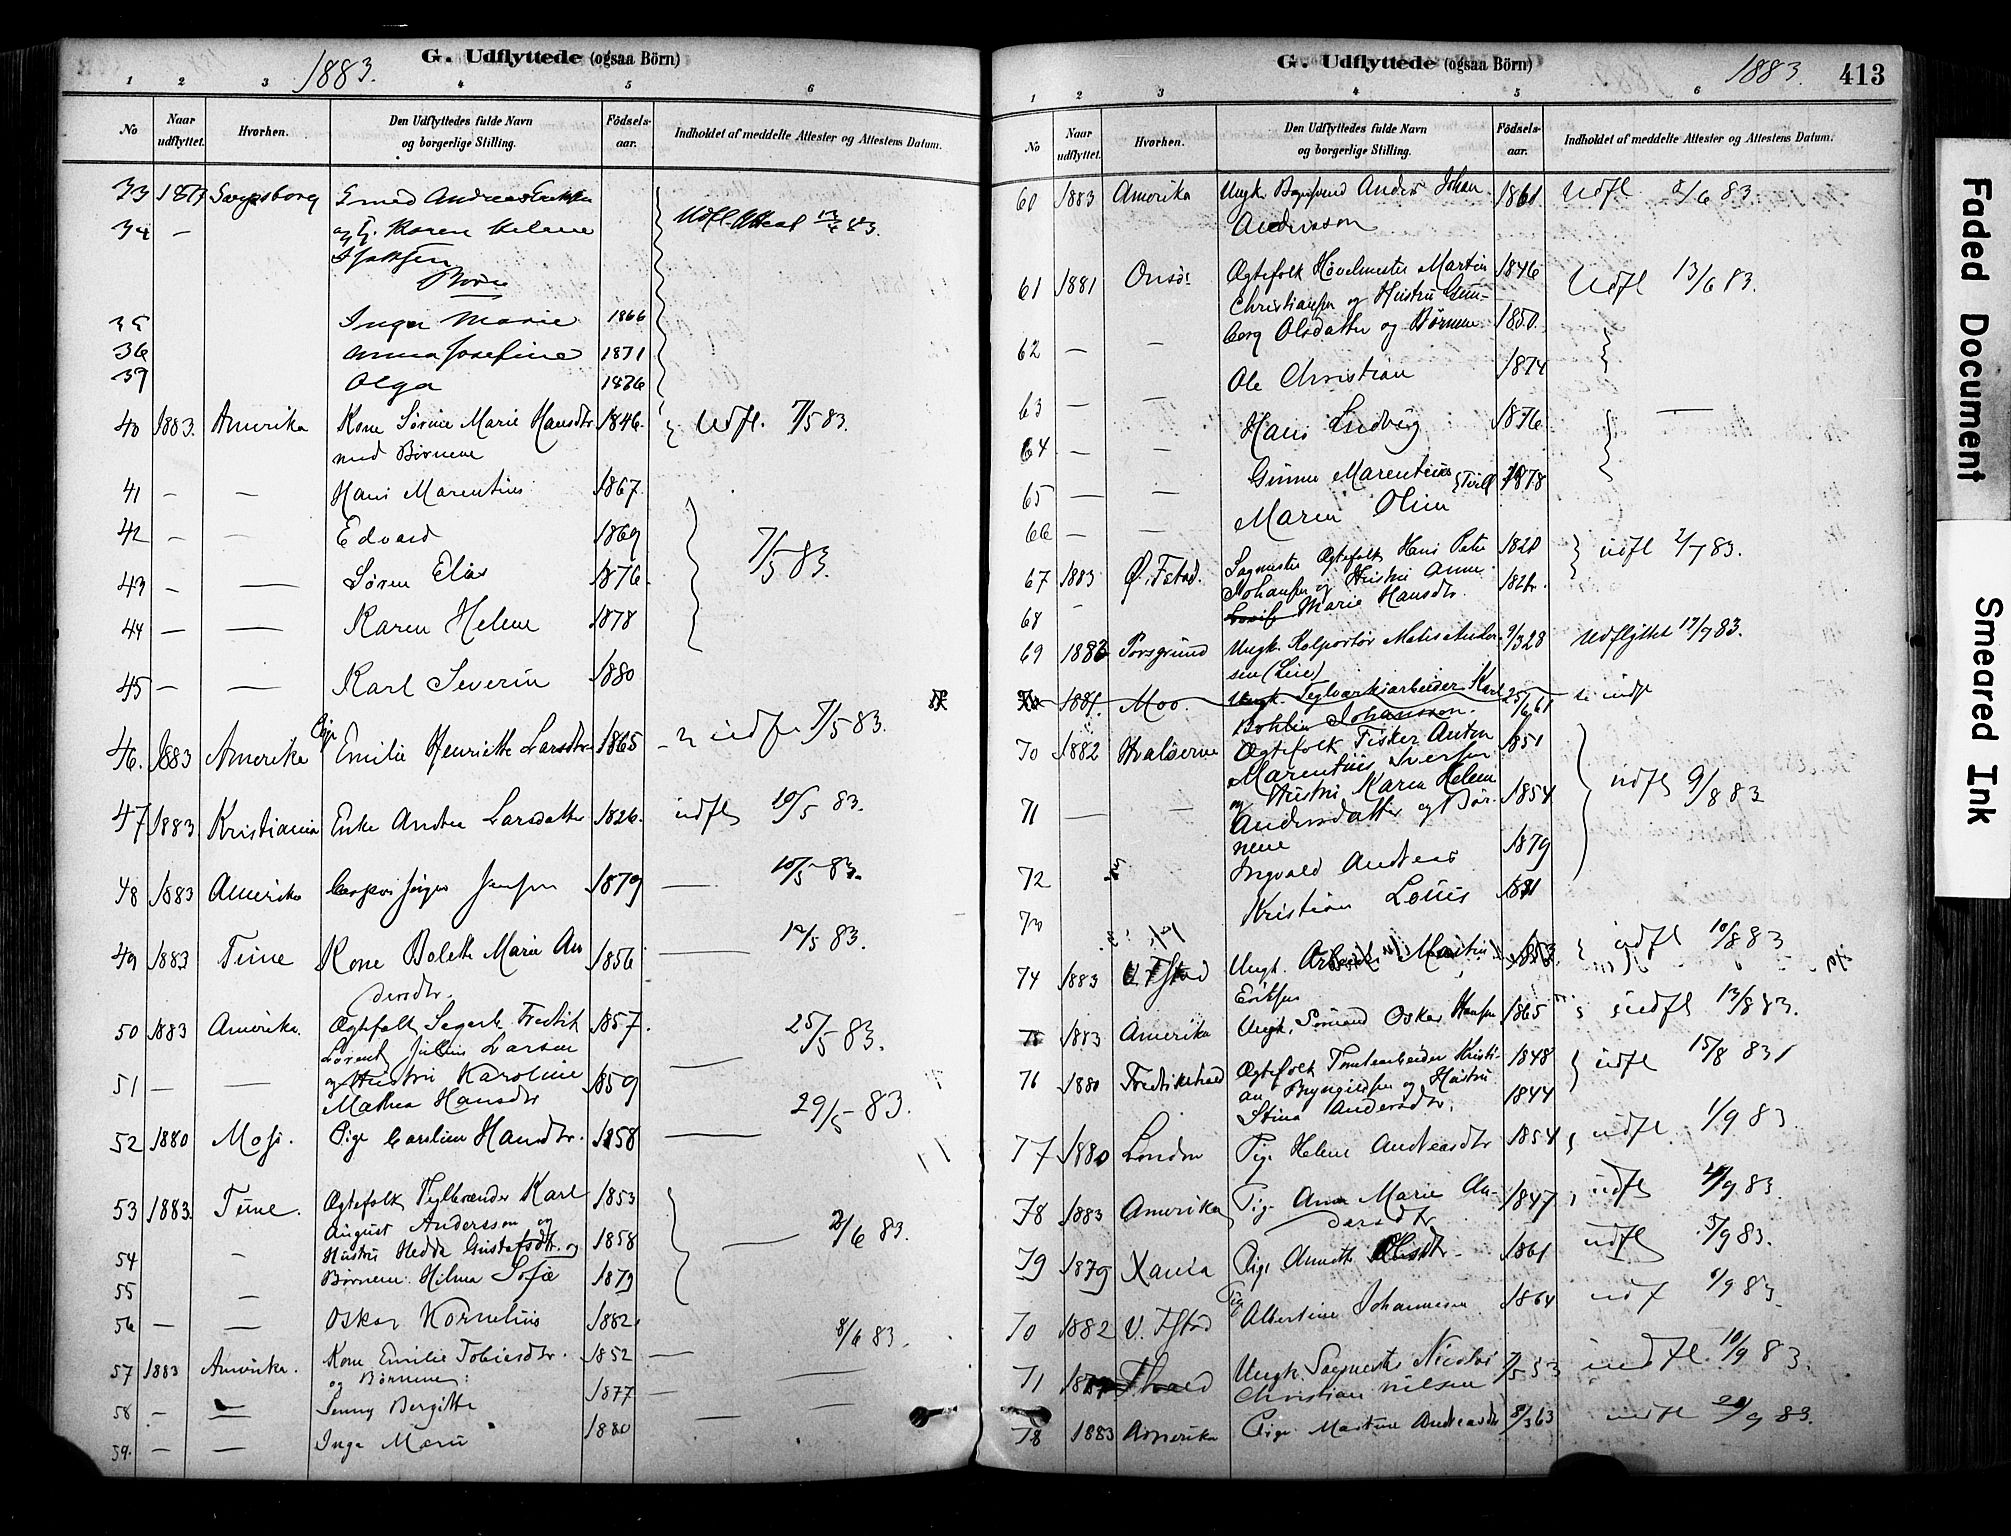 G. Udflyttede (ogsaa Börn)
1883.
1 2 3 4 5 6
No
Naar udflyttet.
Hvorhen.
Den Udflyttedes fulde Navn og borgerlige Stilling.
Födsels-aar.
Indholdet af meddelte Attester og Attestens Datum.
33 1873 Sarpsborg Smed Andreas
34 — og H. Karen Helene
Børn
35 Inga Marie 1866
36 Anna Josefine 1871
37 Olga 1876
40 1883. Amerika Kone Sørine Marie Hansdtr 1846. Udfl. 7/5 83.
med Børnene
41 — — Hans Marentius 1867.
42 — — Edvard 1869
43 — — Søren Elias 1876. 7/5 83.
44 — — Karen Helene 1878
45 — — Karl Severin 1880
46. 1883 Amerika Pige Emilie Henriette Larsdtr 1865 udfl 7/5 83.
47 1883. Kristiania Enke Andrea Larsdatter 1826. udfl 10/5 83.
48 1883 Amerika Jensen 1879 — 10/5 83.
49 1883 Tune Kone Bolette Marie An 1856 — 12/5 83.
dersdtr.
50 1883 Amerika. Ægtefolk Fredrik 1857.
Julius Larsen 25/5 83.
51 — — og Hustru Karoline 1859 —
Mathea Hansdtr 29/5 83.
52 1880 Moss. Pige Caroline Hansdtr. 1858 —
53 1883. Tune. Ægtefolk Teglbrænder Karl 1853
August Andersson og
54 — Hustru Hedda Gustafsdtr. og 1858 — 2/6 83.
55 — Børnene: Hilma Sofie 1879
56 — — Oskar Kornelius 1882.
57 1883 Amerika. Kone Emilie Tobiasdtr. 1852 — 8/6 83.
og Børnene:
58 — — Jenny Bergitte 1877 — —
59. — — Inga Marie 1880 — —
G. Udflyttede (ogsaa Börn)
1883. 413
1 2 3 4 5 6
No
Naar udflyttet.
Hvorhen.
Den Udflyttedes fulde Navn og borgerlige Stilling.
Födsels-aar.
Indholdet af meddelte Attester og Attestens Datum.
60 1883 Amerika Ungk. Anders Johan 1861 Udfl 5/6 83
Andersson
61 1881 Onsø Ægtefolk Høvelmester Martin 1846 Udfl 13/6 83.
Christiansen og Hustru Gun-
62 — — borg Olsdatter og Børnene 1850.
63 — — Ole Christian 1874
64 — — Hans Ludvig 1876. —
65 — — Gunne Marentius Tvill 1878
66 — — Maren Oline
67 1883 Ø. Fstad. Sagmester Ægtefolk Hans Peter 1828 udfl 2/7 83.
Johansen og Hustru Anne
68 — Marie Hansdtr.
69 1883 Porsgrund Ungk. Kolportør Mathis Ander- 9/3 28 Udflyttet 17/7 83.
sen (Lie)
1881. Moss. Ungk. Teglværksarbeider Karl 25/6 61
Johansson.
70 1882 Hvaløerne Ægtefolk Fisker Anton 1851
Marentius Iversen
og Hustru Karen Helene udfl 9/8 83
71 — — Andersdatter og Bør- 1854
nene
72 Ingvald Andreas 1879
73 Kristian Louis 1881
74 1883 V. Fstad Ungk. Martin 1853. udfl 10/8 83
Eriksen
75 1883 Amerika Ungk. Sømand Oskar Hansen 1865 udfl 13/8 83.
76 1880 Fredrikshald Ægtefolk Tomtearbeider Kristi- 1848 udfl 15/8 83
an Bryngildsen og Hustru
Stina Andersdtr. 1844
77 1880 London Pige Helene Andreasdtr 1854 udfl 1/9 83
78 1883 Amerika Pige Anne Marie An- 1847 udfl 4/9 83.
dersdtr
79 1879 Xania Pige Annette Olsdtr 1861 udfl 5/9 83.
70 1882 V. Fstad Pige Albertine Johannesen 1864 udf 6/9 83.
71 Fhald Ungk. Sagmester Nicolai 7/5 53 udfl. 10/9 83.
Christian Nilsen
78 1883 Amerika Pige Martine Andreasdtr 8/3 63 udfl 20/9 83.
Faded Document
Smeared Ink